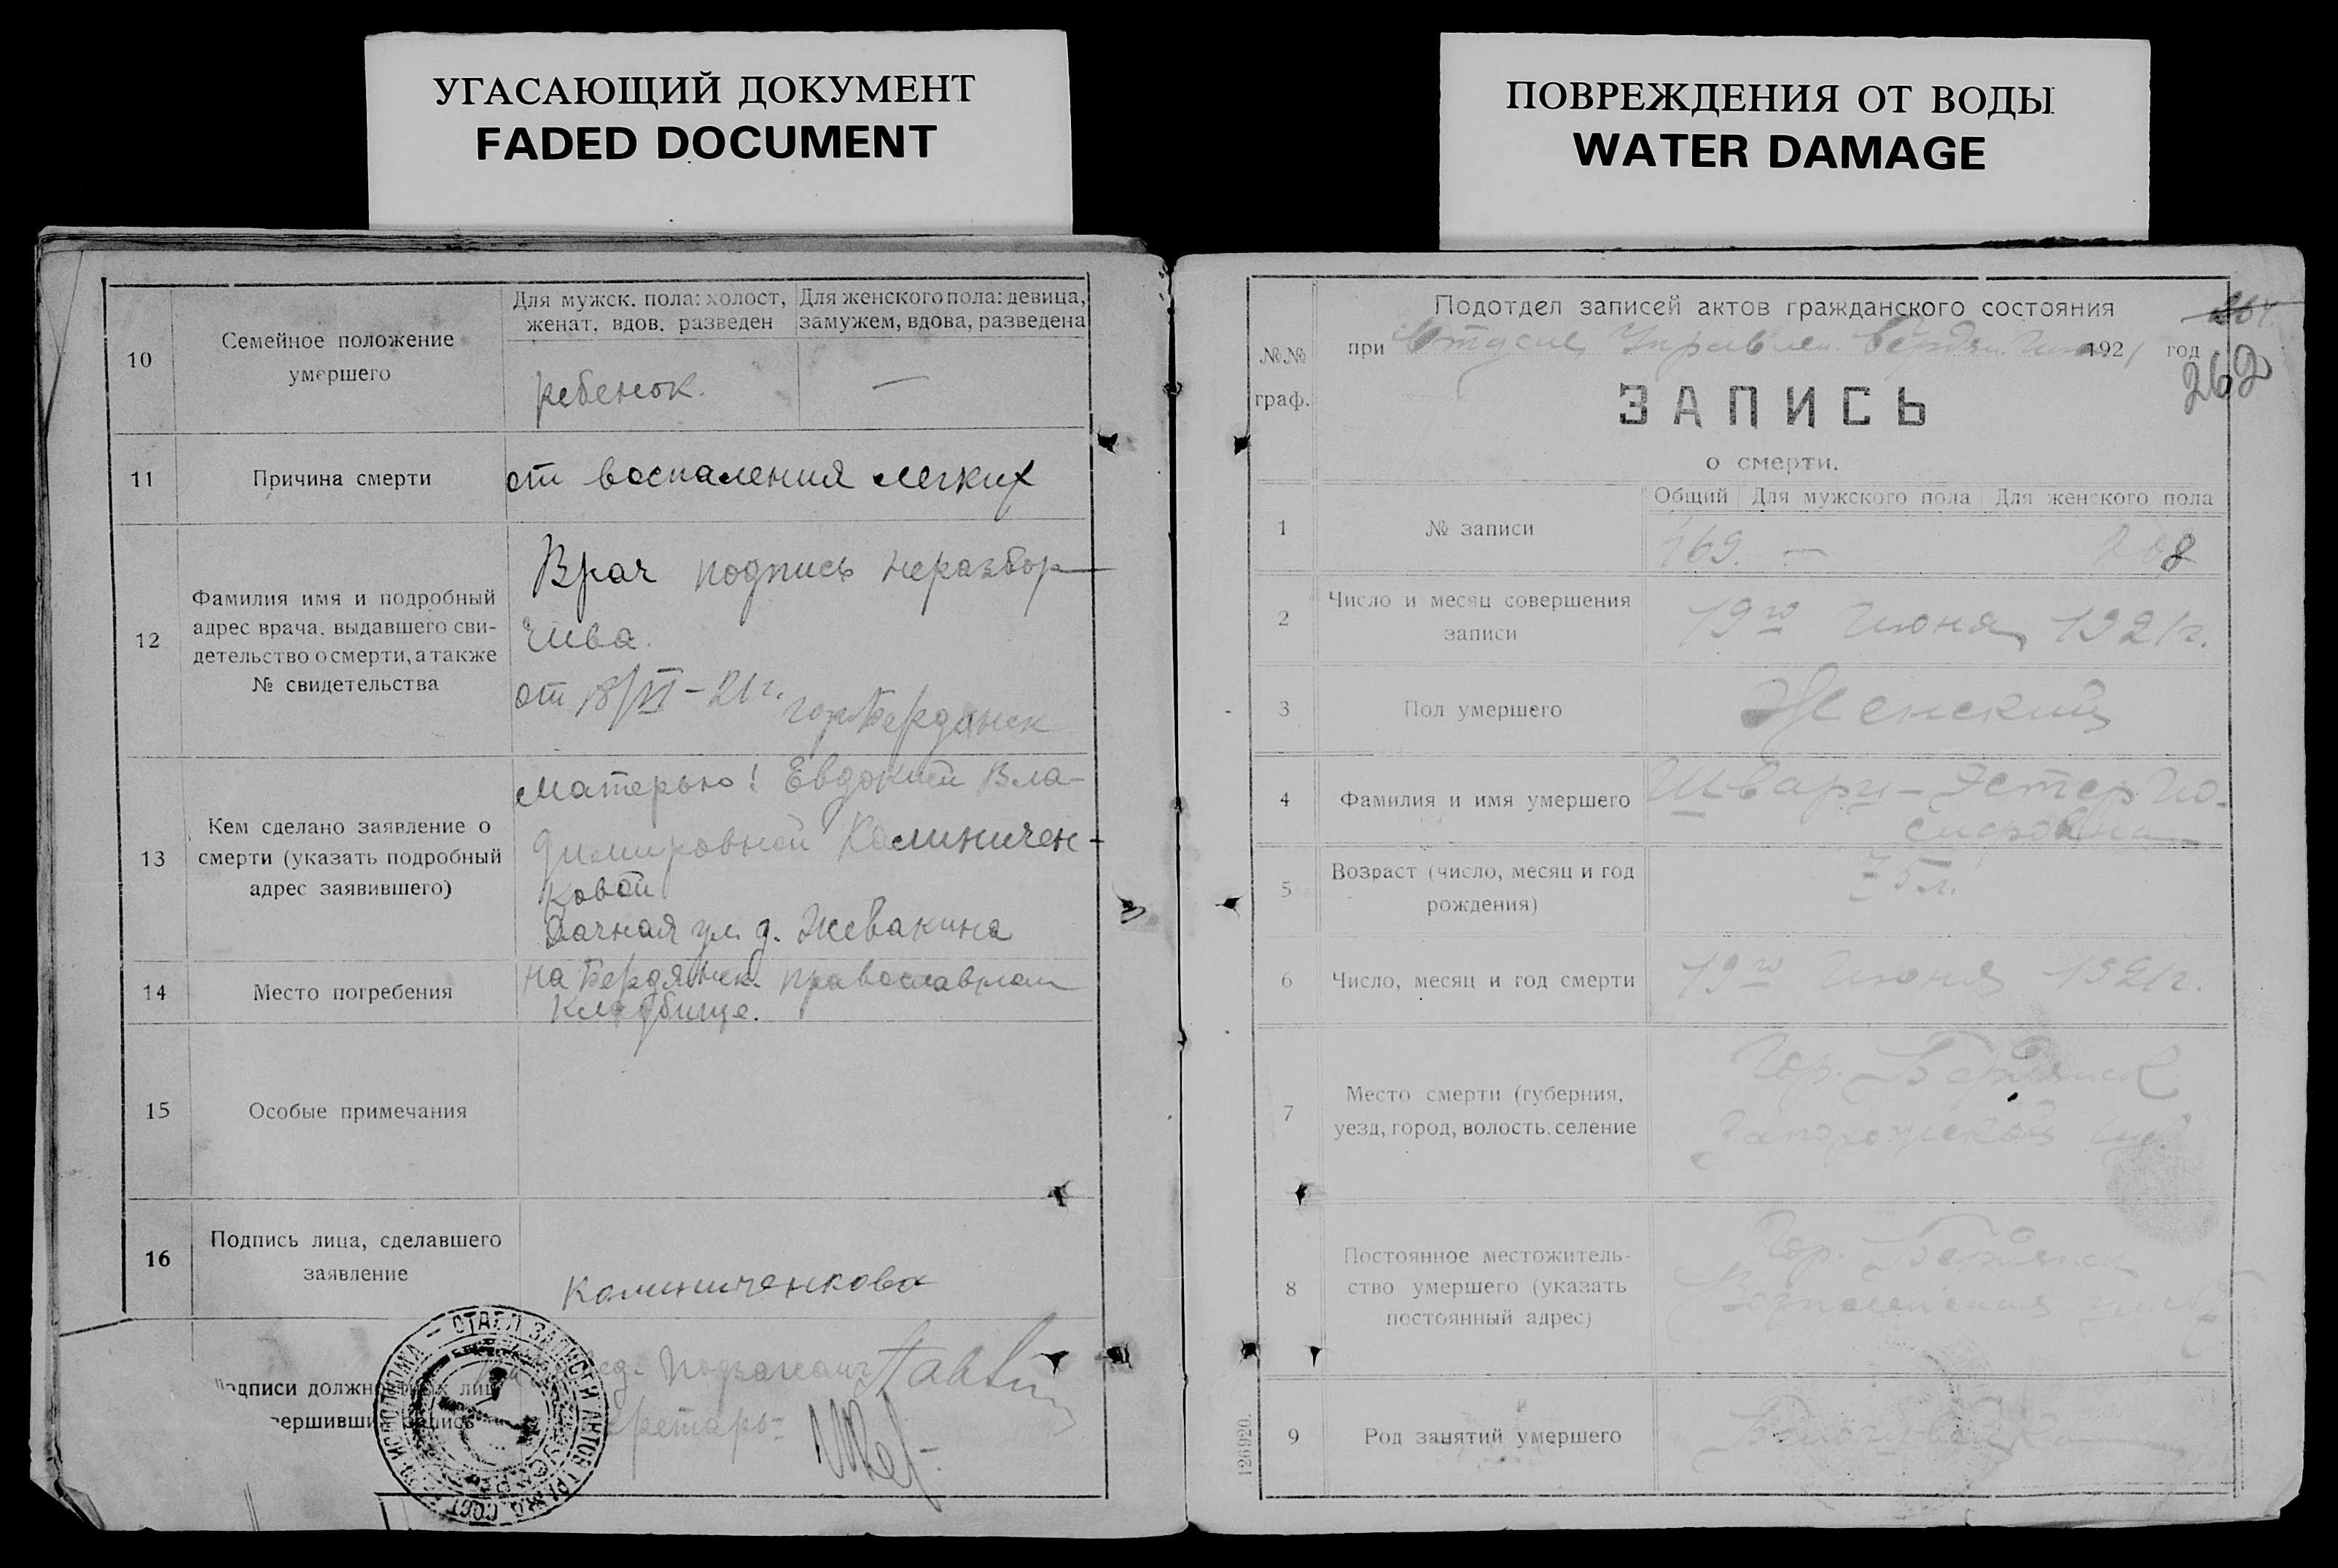 УГАСАЮЩИЙ ДОКУМЕНТ
FADED DOCUMENT
10
Семейное положение
умершего
Для мужск. пола: холост,
женат. вдов. разведен
Для женского пола: девица,
замужем, вдова, разведена
ребенок.
—
11
Причина смерти
от воспаления легких
12
Фамилия имя и подробный
адрес врача. выдавшего сви-
детельство о смерти, а также
№ свидетельства
Врач подпись неразбор-
чива.
от 18/VI – 21 г.
гор Бердянск
13
Кем сделано заявление о
смерти (указать подробный
адрес заявившего)
Матерью! Евдокией Вла-
димировной Калиничен-
ковой
Дачная ул. д. Жевакина
14
Место погребения
на Бердянск. православном
кладбище.
15
Особые примечания
16
Подпись лица, сделавшего
заявление
Калиниченкова
ПОВРЕЖДЕНИЯ ОТ ВОДЫ
WATER DAMAGE
№№
граф.
Подотдел записей актов гражданского состояния
при Отделе Управлен. 1921 год
262
ЗАПИСЬ
о смерти.
1
№ записи
Общий
Для мужского пола
Для женского пола
469. — 208
2
Число и месяц совершения
записи
19го Июня 1921 г.
3
Пол умершего
Женский
4
Фамилия и имя умершего
Шварц – Эстер Ио-
сифовна
5
Возраст (число, месяц и год
рождения)
75 л.
6
Число, месяц и год смерти
19го Июня 1921 г.
7
Место смерти (губерния,
уезд, город, волость. селение
Гор. Бердянск
Запорожской губ.
8
Постоянное местожитель-
ство умершего (указать
постоянный адрес)
Гор. Бердянск
9
Род занятий умершего
126920.